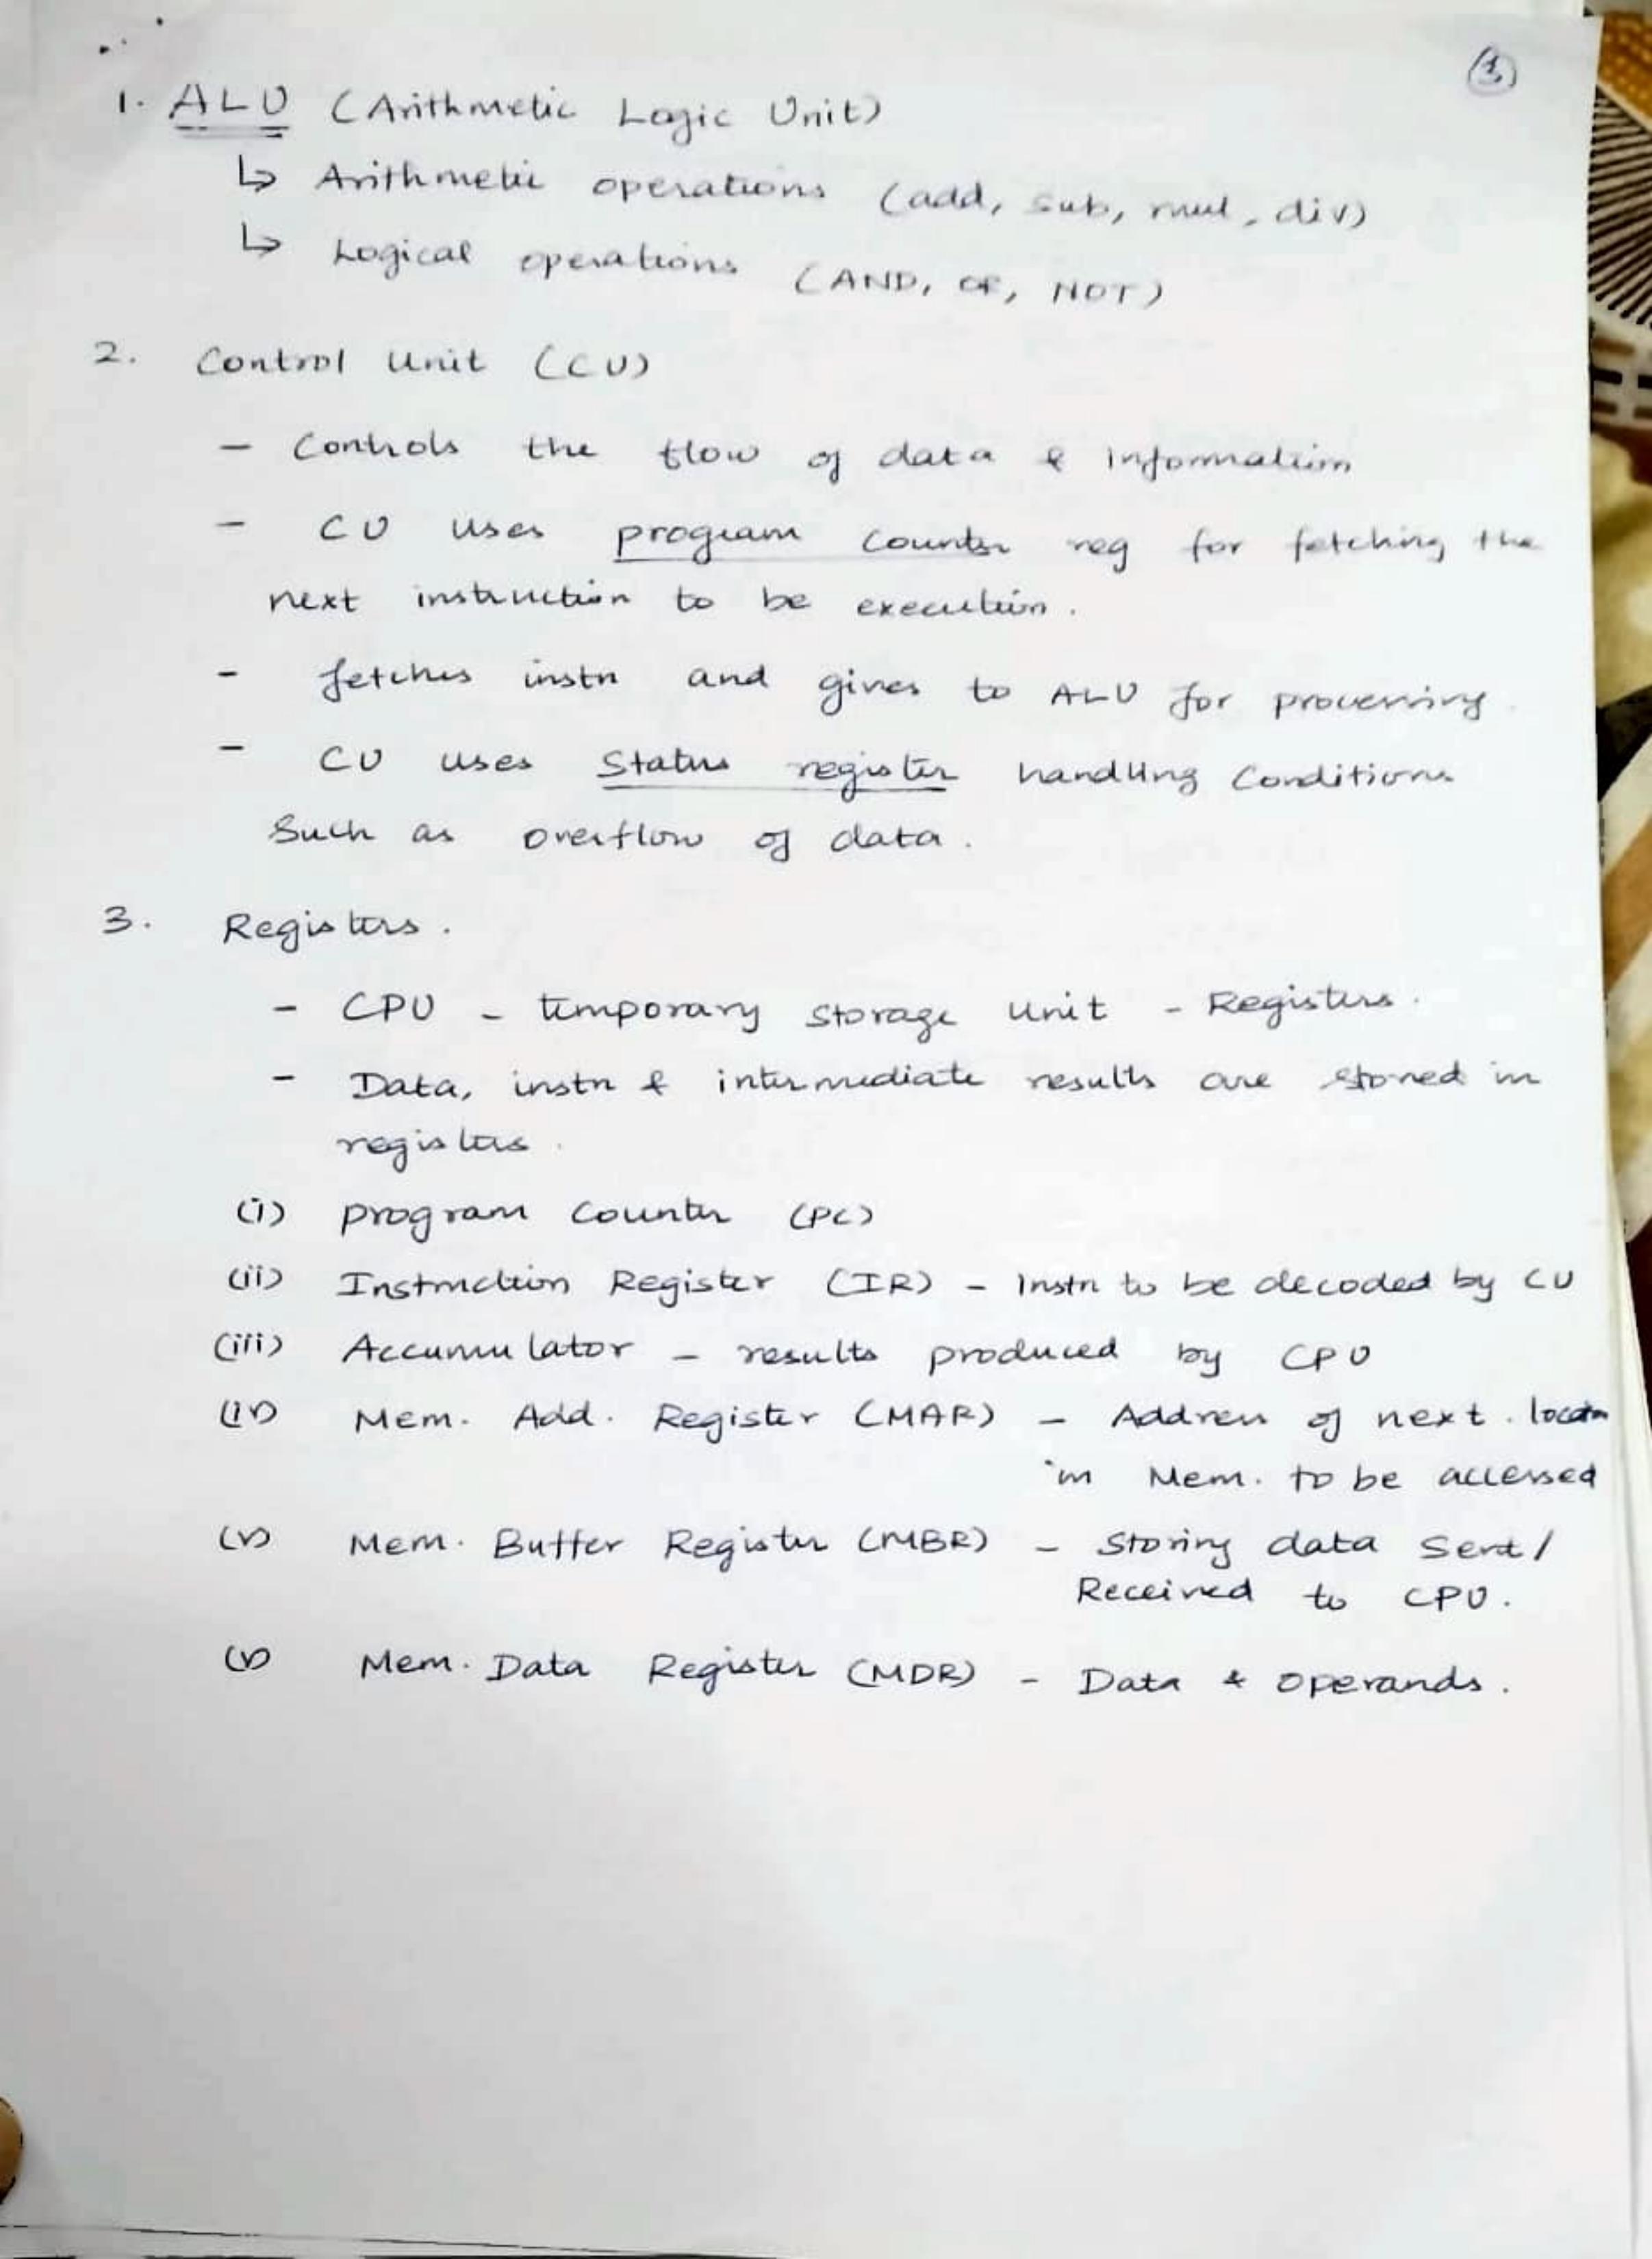 (1)
1. ALU (Arithmetic Logic Unit)
↳ Arithmetic operations (add, sub, mul, div)
↳ Logical operations (AND, OR, NOT)
2. Control Unit (CU)
- Controls the flow of data & information
- CU uses program counter reg for fetching the
next instruction to be execution.
- fetches instn and gives to ALU for processing.
- CU uses Status register handling Conditions
Such as overflow of data.
3. Registers.
- CPU - temporary storage Unit - Registers.
- Data, instn & intermediate results are stored in
registers.
(i) program Counter (PC)
(ii) Instruction Register (IR) - Instn to be decoded by CU
(iii) Accumulator - results produced by CPU
(iv) Mem. Add. Register (MAR) - Address of next. locatn
in Mem. to be accessed
(v) Mem. Buffer Register (MBR) - Storing data Sent/
Received to CPU.
(v) Mem. Data Register (MDR) - Data & Operands.